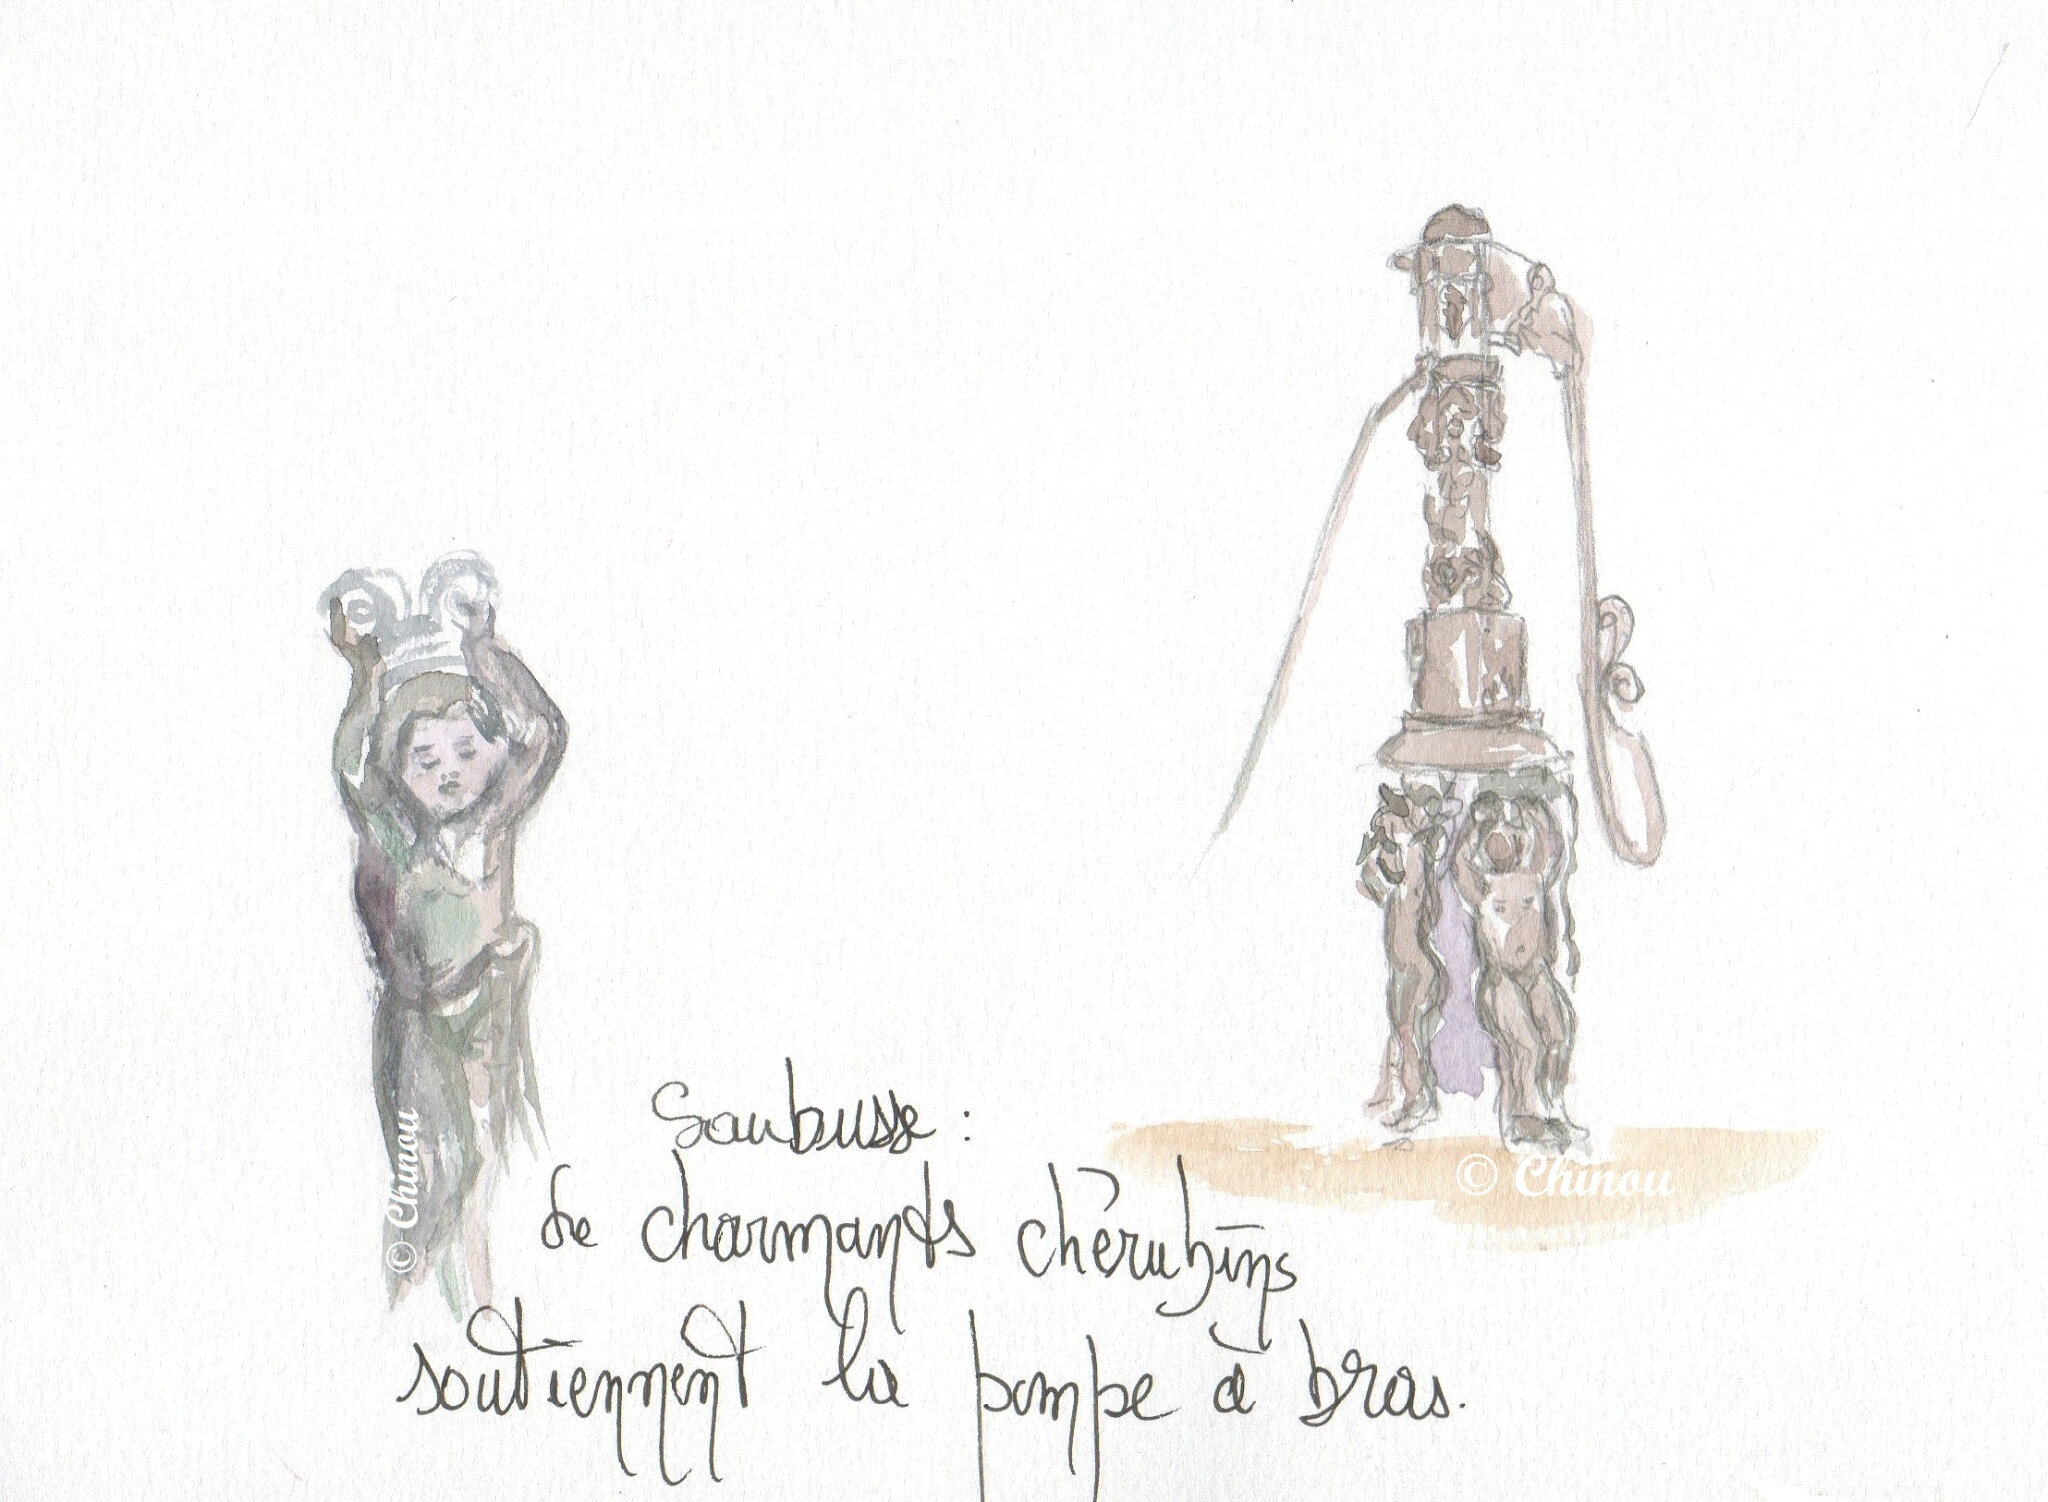 Saubusse :
de charmants chérubins
soutiennent la pompe à bras.
© Chinou
© Chinou